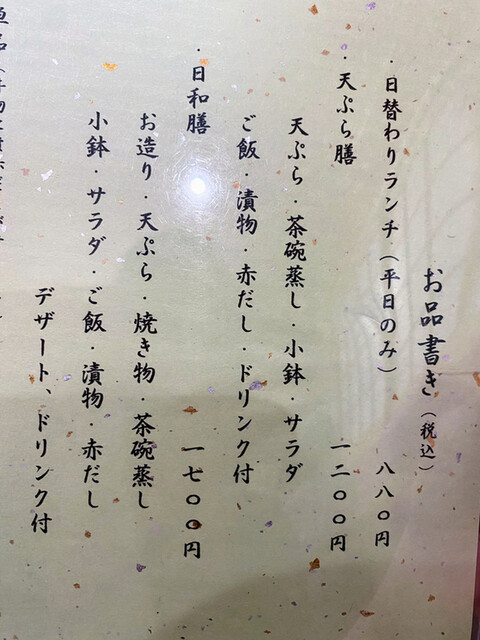 お品書き（税込）
・日替わりランチ（平日のみ） 八八〇円
・天ぷら膳 一二〇〇円
天ぷら・茶碗蒸し・小鉢・サラダ
ご飯・漬物・赤だし・ドリンク付
・日和膳 一七〇〇円
お造り・天ぷら・焼き物・茶碗蒸し
小鉢・サラダ・ご飯・漬物・赤だし
デザート、ドリンク付